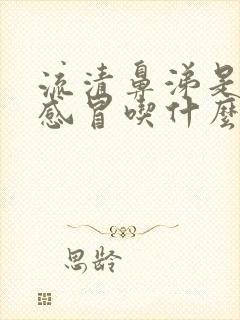 流清鼻涕是
感冒喫什麼
思齡